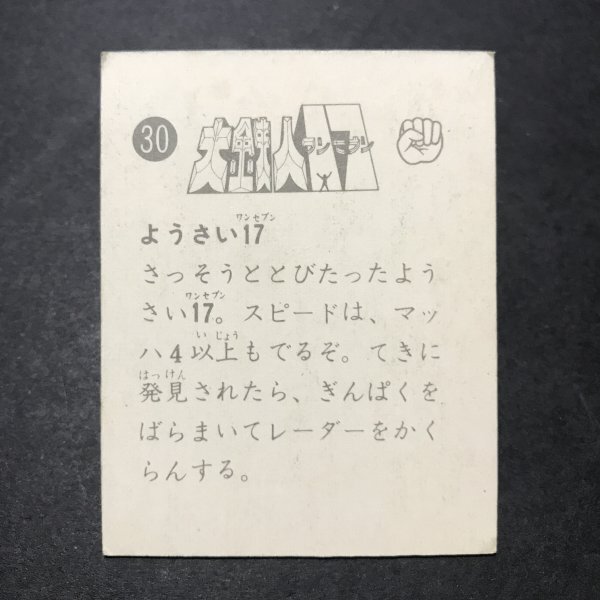 30
大鉄人17
ワンセブン
ワンセブン
ようさい17
さっそうととびたったよう
ワンセブン
さい17。スピードは、マッ
い じょう
ハ4以上もでるぞ。てきに
はっけん
発見されたら、ぎんぱくを
ばらまいてレーダーをかく
らんする。